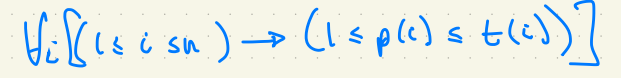 ∀i[(1 ≤ i ≤ n) → (1 ≤ p(i) ≤ t(i))]